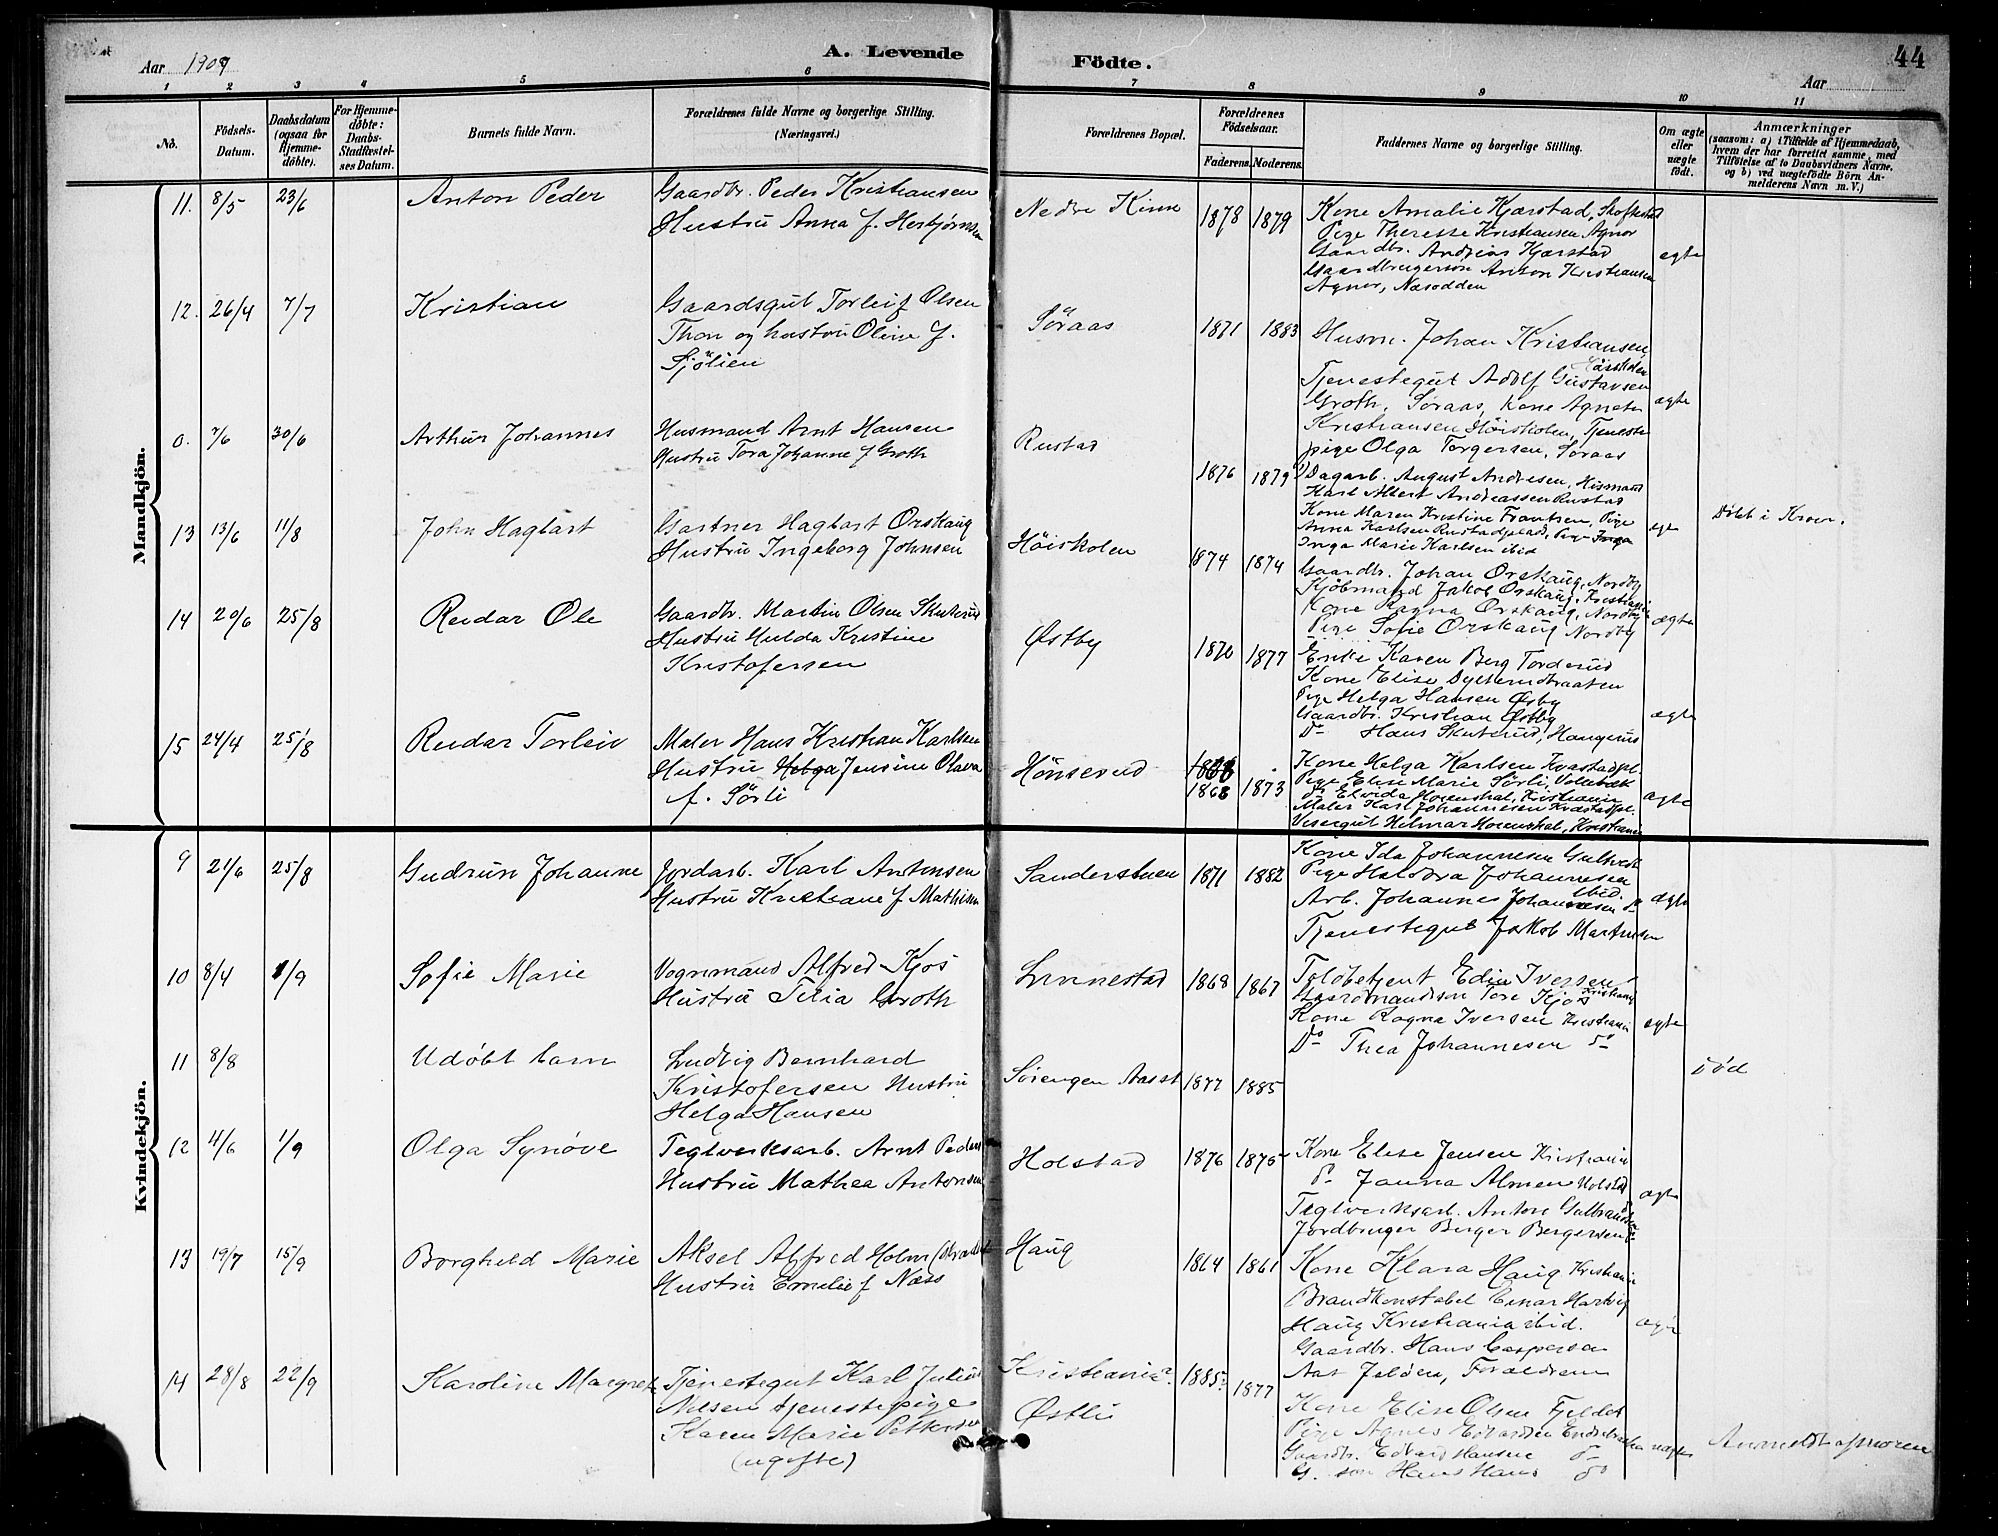 A. Levende Födte.
44
Aar 1907
Aar
1 2 3 4 5 6 7 8 9 10 11
No.
Födsels-Datum.
Daabsdatum (ogsaa for Hjemme-döbte).
For Hjemme-döbte: Daabs-Stadfæstel-ses Datum.
Barnets fulde Navn.
Forældrenes fulde Navne og borgerlige Stilling. (Næringsvei.)
Forældrenes Bopæl.
Forældrenes Födselsaar.
Faderens. Moderens.
Faddernes Navne og borgerlige Stilling.
Om ægte eller uægte födt.
Anmærkninger
(saasom: a) i Tilfælde af Hjemmedaab, hvem der har forrettet samme, med Tilföielse af to Daabsvidners Navne, og b) ved uægtefödte Börn An-melderens Navn m. V.)
Mandkjön.
11. 8/5 23/6 Anton Peder
Gaardbr. Peder Kristiansen
Hustru Anna f. Herbjørnsen
Nedre Kinn 1878 1879
Kone Amalie Kjærstad,
Pige Therese Kristiansen Agnor
Gaardbr. Andreas Kjærstad
Gaardbrugersøn Anton Kristiansen
Agnor, Næsodden
ægte
12. 26/4 7/7 Kristian
Gaardsgut Torleif Olsen
Thon og hustru Oline f.
Sjölien
Söraas 1871 1883
Husm. Johan Kristiansen
Höiskolen
Tjenestegut Adolf Gustavsen
Groth, Søraas, Kone Agnete
Kristiansen Höiskolen, Tjeneste
pige Olga Torgersen, Søraas
ægte
0. 7/6 30/6 Arthur Johannes
Husmand Arnt Hansen
Hustru Tora Johanne f Groth
Rustad 1876 1879
Dagarb. August Andresen, Husmand
Karl Albert Andreassen Rustad
Kone Maren Kristine Frantsen, Pige
Anna Karlsen Rustadplads, Pige Inga
Inga Marie Karlsen ibid
ægte
Döbt i Kroer.
13 13/6 11/8 John Hagbart
Gartner Hagbart Orskaug
Hustru Ingeborg Johnsen
Höiskolen 1874 1874
Gaardbr. Johan Orskaug, Nordby
Kjöbmand Jakob Orskaug, Kristiania
Kone Ragna Orskaug, Nordby
Pige Sofie Orskaug Nordby
ægte
14 20/6 25/8 Reidar Ole
Gaardbr. Martin Olsen Skuterud
Hustru Hulda Kristine
Kristofersen
Østby 1877
Enke Karen Berg Tordерud
Kone Elise
Pige Helga Hansen Østby
Gaardbr. Kristian Østby
Do Hans Skuterud, Haugerud
ægte
15 24/4 25/8 Reidar Torleiv
Maler Hans Kristian Karlsen
Hustru Helga Jensine Olava
f. Sörli
Hönserud 1868
1868 1873
Kone Helga Karlsen Kvæstadpl.
Pige Elise Marie Sörli, Vollebæk
do Elvida Hosenthal, Kristiania
Maler Karl Johannesen Kvæstadpl.
Visergut Hilmar Hosenthal, Kristiania
ægte
Kvindekjön.
9 21/6 25/8 Gudrun Johanne
Jordarb. Karl Antonsen
Hustru Kristiane f Mathisen
Sanderstuen 1871 1882
Kone Ida Johannesen
Pige Johannesen
ibid.
Arb. Johannes Johannesen do
Tjenestegut Jakob Martinsen
ægte
10 8/4 1/9 Sofie Marie
Vognmand Alfred Kjos
Hustru Tilia Groth
Linnestad 1868 1867
Toldbetjent Edin Iversen
Kristiania
Gaardmandssøn Tore Kjos
Kone Ragna Iversen Kristiania
Do Thea Johannesen do
ægte
11 8/8 Udøbt barn
Ludvig Bernhard
Kristofersen Hustru
Helga Hansen
Sørengen Aas st 1877 1885
Død
12 4/6 1/9 Olga Synøve
Teglverksarb. Arnt Pedersen
Hustru Mathea Antonsen
Holstad 1876 1875
Kone Elise Jensen Kristiania
do Janna Almen Holstad
Teglverksarb. Anton Gulbrandsen
Jordbruger Berger Bergersen do
ægte
13 19/7 15/9 Borghild Marie
Aksel Alfred Holm
Hustru Emilie f Næss
Haug 1864 1861
Kone Klara Haug Kristiania
Brandkonstabel Einar Hartvig
Haug Kristiania ibid.
Gaardbr. Hans Caspersen
Aas Jelöen, Forældrene
ægte
14 28/8 22/9 Karoline Margret
Tjenestegut Karl Julius
Nilsen tjenestepige
Karen Marie Pettersen
(ugifte)
Kristiania?
Østli
1885? 1877
Kone Elise Olsen Fjeldet
Pige Agnes Edvardsen
Gaardbr. Edvard Hansen do
G. søn Hans Hans do
uægte
Anmeldt af moren